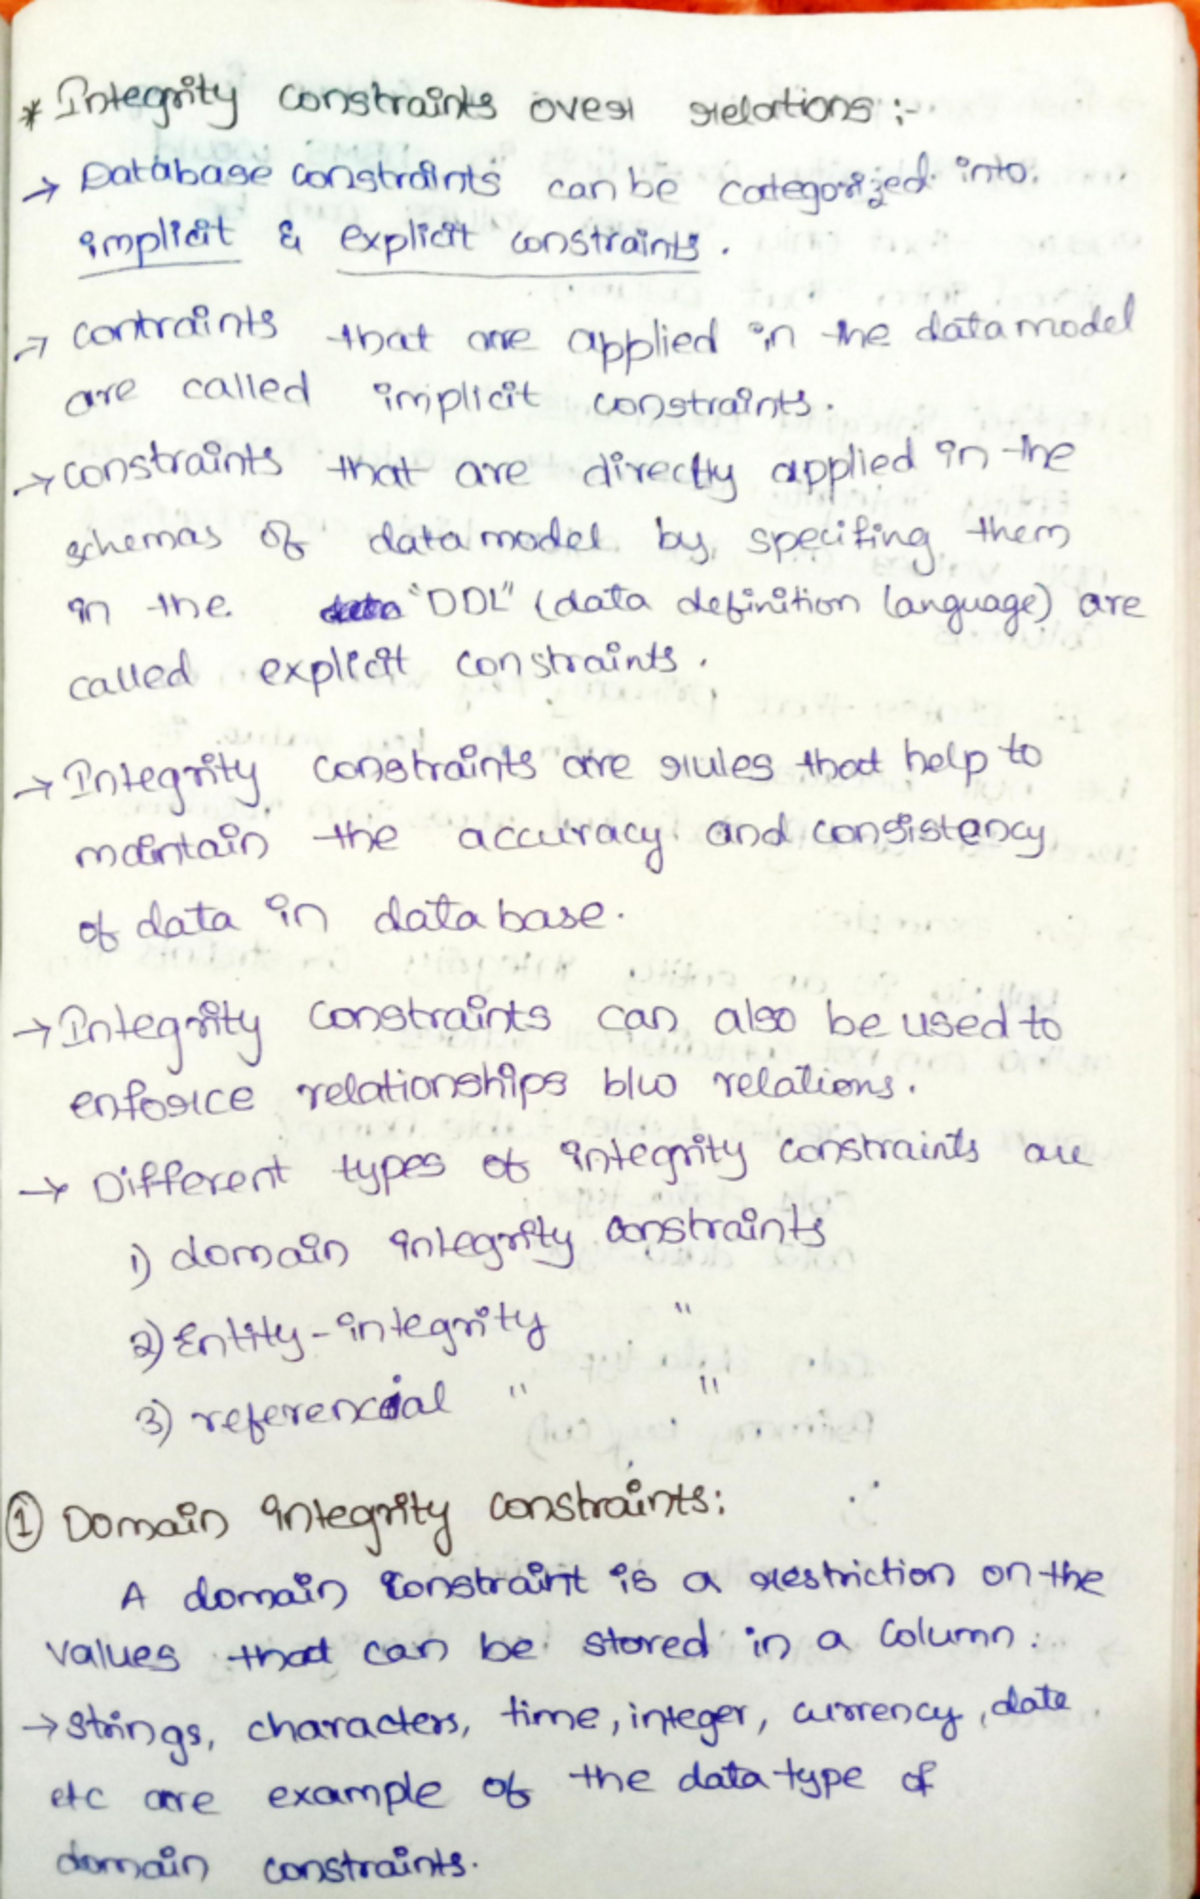 * Integrity constraints over relations :-
→ Database constraints can be categorized into
implicit & explicit constraints.
→ contraints that are applied in the data model
are called implicit constraints.
→ constraints that are directly applied in the
schemas of data model by specifing them
in the data "DDL" (data definition language) are
called explicit constraints.
→ Integrity constraints are rules that help to
maintain the accuracy and consistency
of data in data base.
→ Integrity constraints can also be used to
enforce relationships b/w relations.
→ Different types of integrity constraints are
1) domain integrity constraints
2) Entity-integrity "
3) referencial " "
① Domain integrity constraints:
A domain constraint is a restriction on the
values that can be stored in a column.
→ strings, characters, time, integer, currency, date
etc are example of the data type of
domain constraints.